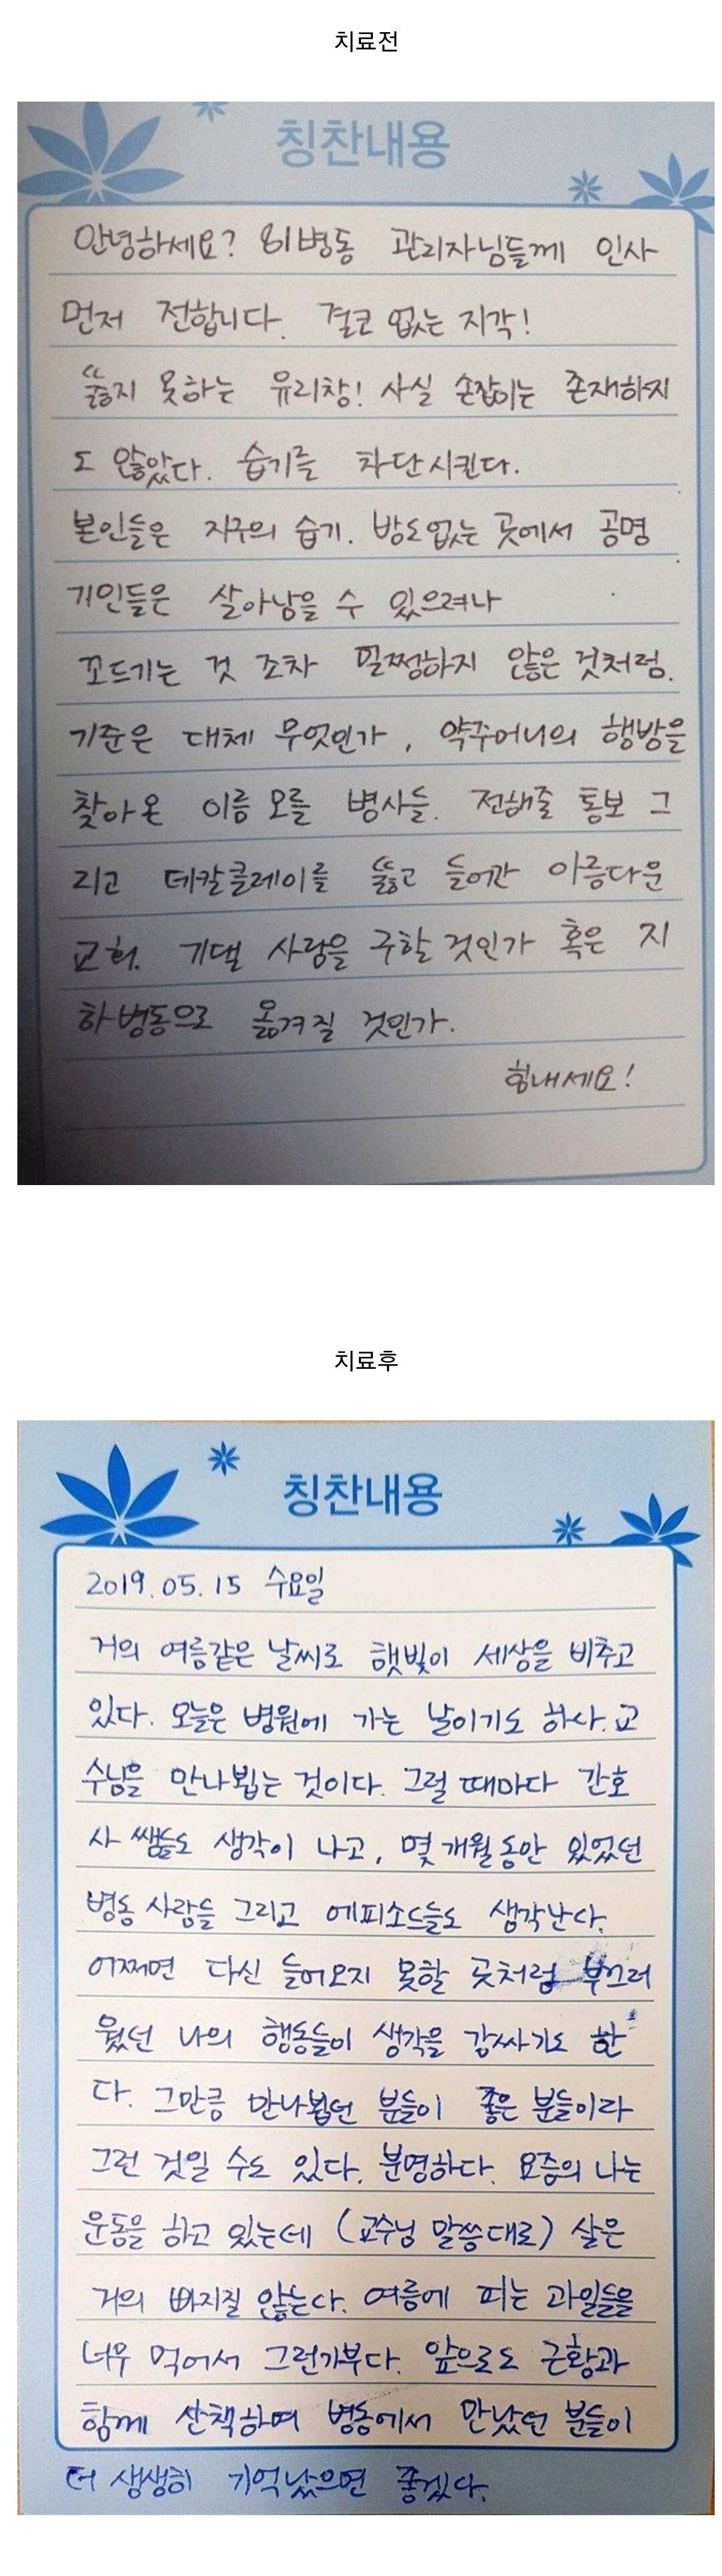 치료전
칭찬내용
안녕하세요? 81병동 관리자님들께 인사
먼저 전합니다. 결코 없는 지각!
뚫지 못하는 유리창! 사실 손잡이는 존재하지
도 않았다. 습기를 차단시킨다.
본인들은 지구의 습기. 방도없는 곳에서 공명
기인들은 살아남을 수 있으려나
꼬드기는 것 조차 멀쩡하지 않은 것처럼.
기준은 대체 무엇인가, 약주머니의 행방을
찾아온 이름 모를 병사들. 전해줄 통보 그
리고 데칼클레이를 뚫고 들어간 아름다운
교회. 기댈 사람을 구할 것인가 혹은 지
하병동으로 옮겨질 것인가.
힘내세요!
치료후
칭찬내용
2019.05.15 수요일
거의 여름같은 날씨로 햇빛이 세상을 비추고
있다. 오늘은 병원에 가는 날이기도 하다. 교
수님을 만나뵙는 것이다. 그럴 때마다 간호
사 쌤들도 생각이 나고, 몇 개월동안 있었던
병동 사람들 그리고 에피소드들도 생각난다.
어쩌면 다신 들어오지 못할 곳처럼 부끄러
웠던 나의 행동들이 생각을 감싸기도 한
다. 그만큼 만나뵀던 분들이 좋은 분들이라
그런 것일 수도 있다. 분명하다. 요즘의 나는
운동을 하고 있는데 (교수님 말씀대로) 살은
거의 빠지질 않는다. 여름에 피는 과일들을
너무 먹어서 그런가부다. 앞으로도 근황과
함께 산책하며 병동에서 만났던 분들이
더 생생히 기억났으면 좋겠다.